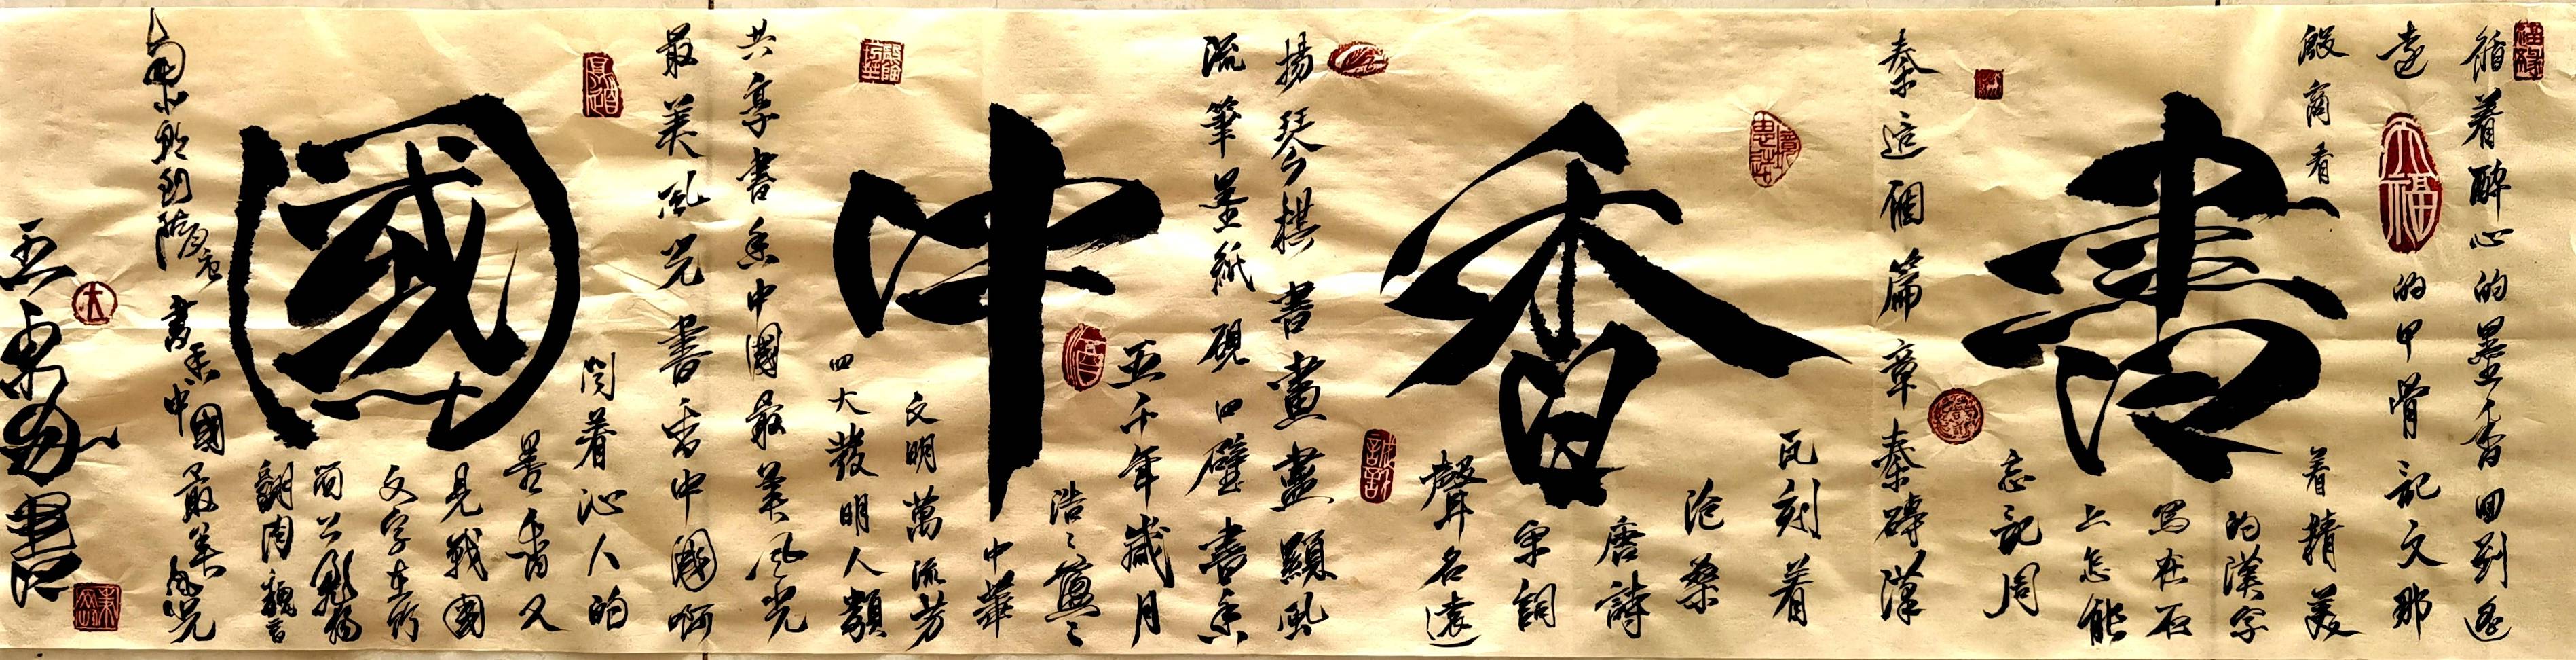 書香中國
循着醉心的墨香回到遥
遠的甲骨記文那
殷商看着精美
的漢字
寫在石
上怎能
忘記周
秦這個篇章秦磚漢
瓦刻着
滄桑
唐詩
宋詞
聲名遠
揚琴棋書畫盡顯風
流筆墨紙硯四壁書香
五千年歲月
浩〻盪〻
中華
文明萬流芳
四大發明人類
共享書香中國最美風光
最美風光書香中國啊
聞着沁人的
墨香又
見戰國
文字在竹
簡上飛揚
翻閱魏晋
南北朝到隋唐
書香中國最美風光
大福
福祿